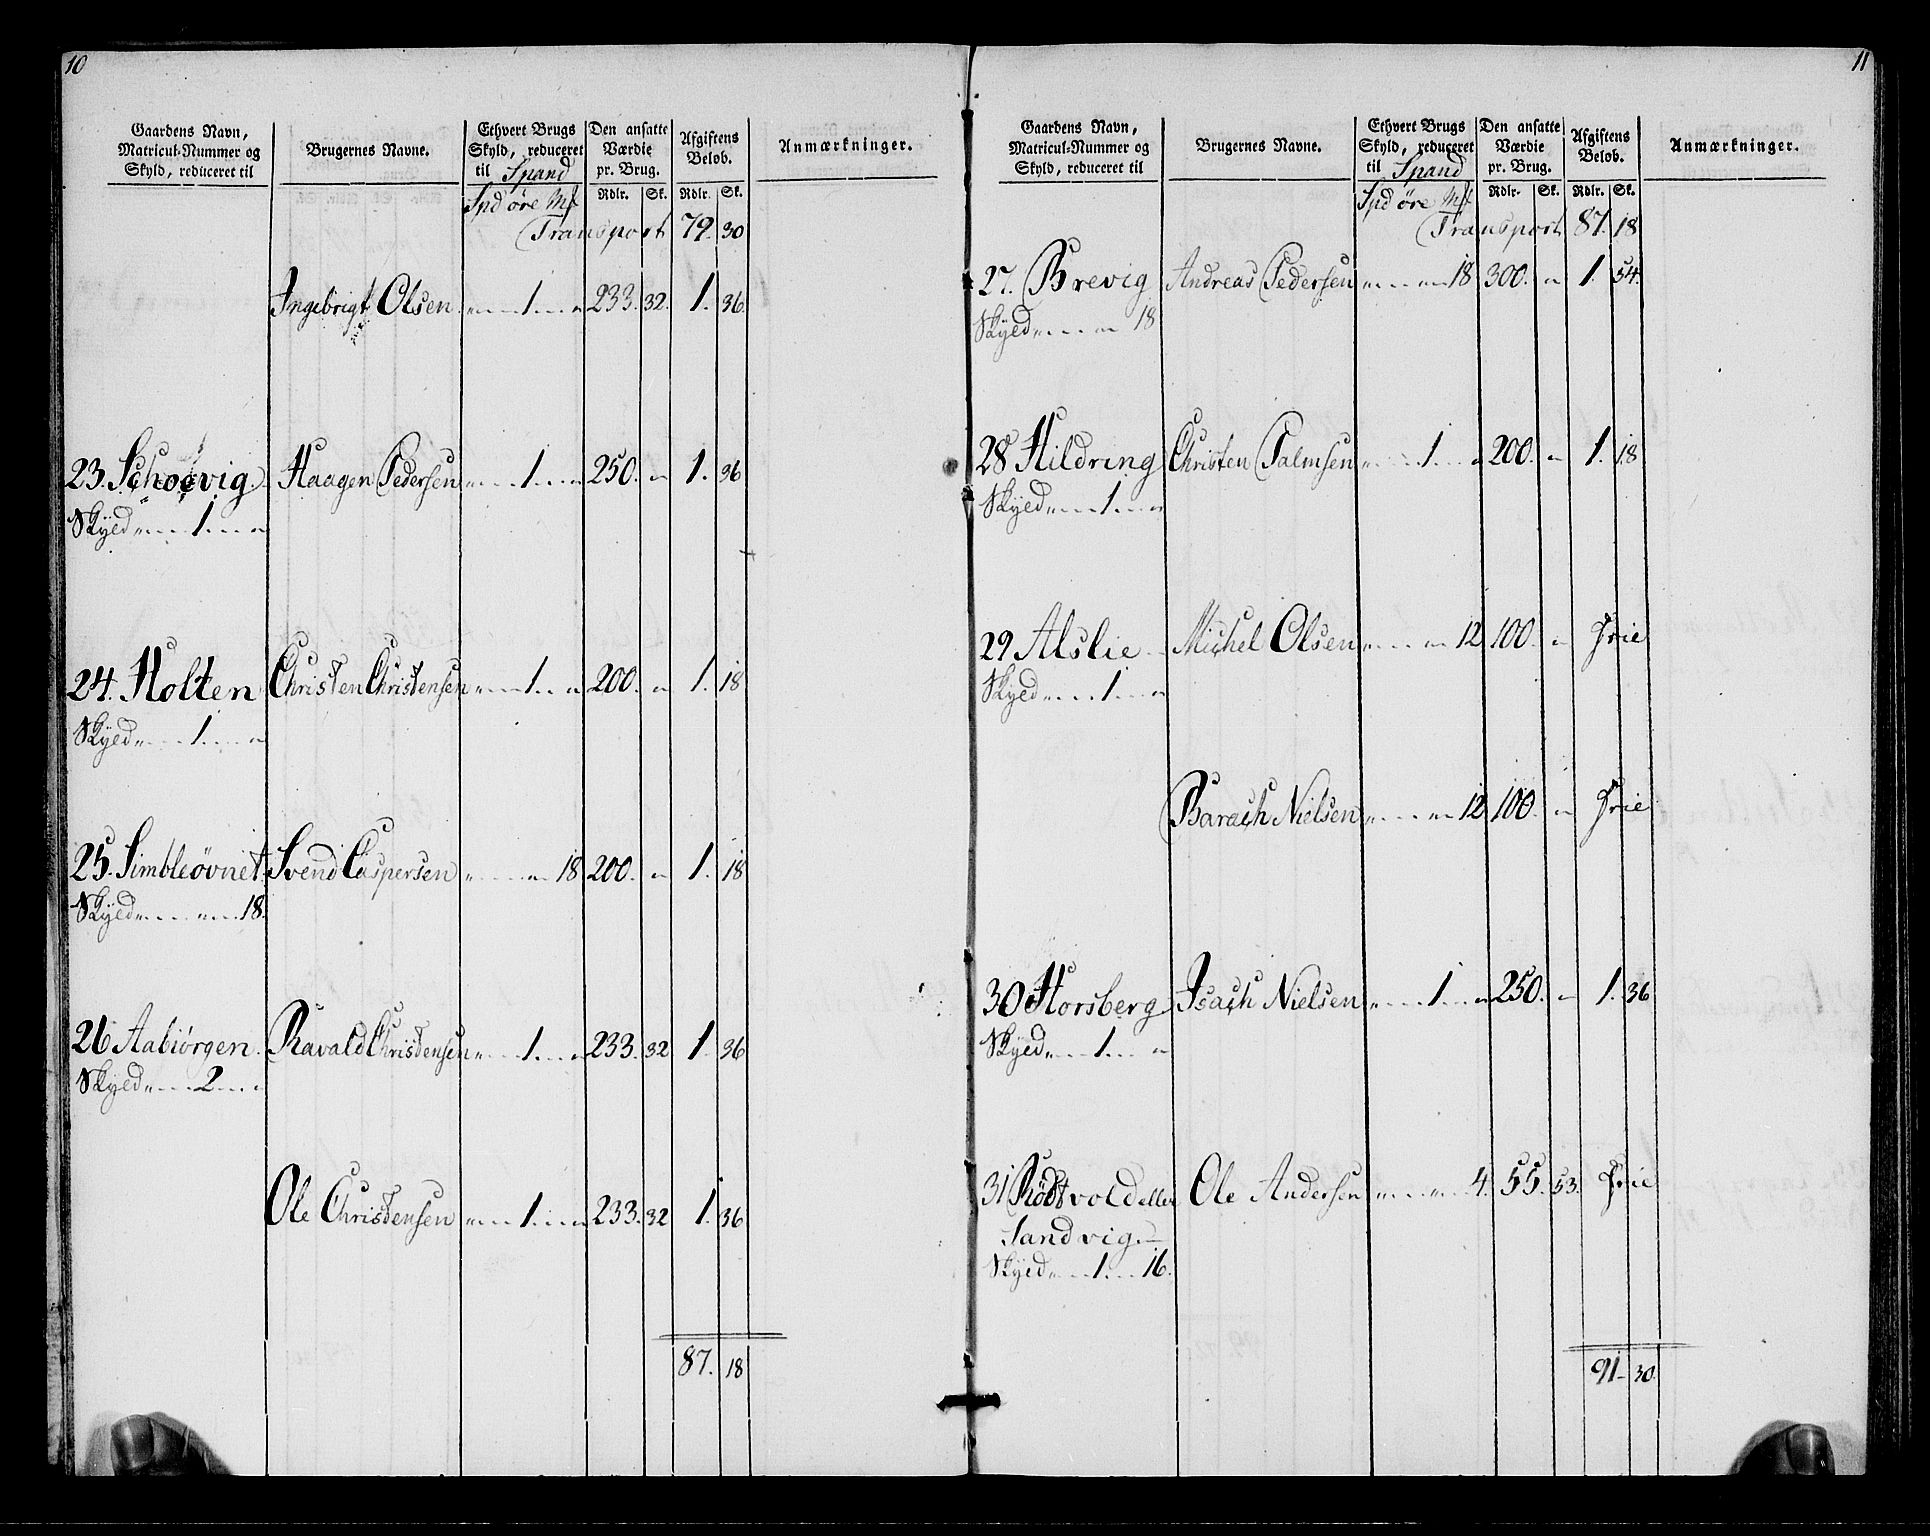 10
Gaardens Navn, Matricul-Nummer og Skyld, reduceret til | Brugernes Navne. | Ethvert Brugs Skyld, reduceret til Spand | Den ansatte Værdie pr. Brug. | Afgiftens Belob. | Anmærkninger.
Spd øre Mk | Rdlr. | Sk. | Rdlr. | Sk.
Transport 79. 30
Ingebrigt Olsen „ 1 „ 233. 32. 1. 36.
23. Schoevig Haagen Pedersen „ 1 „ 250. „ 1. 36
Skyld „ 1 „
24. Holten Christen Christensen „ 1 „ 200. „ 1. 18
Skyld „ 1 „
25. Simbleøvnet Svend Caspersen „ „ 18 200. „ 1. 18
Skyld „ „ 18.
26 Aabiørgen Ravald Christensen „ 1 „ 233. 32 1. 36
Skyld „ 2 „
Ole Christensen „ 1 „ 233. 32 1. 36
87. 18
11
Gaardens Navn, Matricul-Nummer og Skyld, reduceret til | Brugernes Navne. | Ethvert Brugs Skyld, reduceret til Spand | Den ansatte Værdie pr. Brug. | Afgiftens Belob. | Anmærkninger.
Spd øre Mk | Rdlr. | Sk. | Rdlr. | Sk.
Transport 87. 18
27. Brevig Andreas Pedersen „ „ 18 300. „ 1. 54.
Skyld „ „ 18
28 Hildring Christen Palmsen „ 1 „ 200. „ 1. 18
Skyld „ 1 „
29 Alslie Michel Olsen „ „ 12 100. „ Frie
Skyld „ 1 „
Barach Nielsen „ „ 12 100. „ Frie
30 Horsberg Isach Nielsen „ 1 „ 250. „ 1. 36
Skyld „ 1 „
31 Rödtvold eller Ole Andersen „ „ 4. 55. 53. Frie
Sandvig.
Skyld „ 1. 16.
91 30.